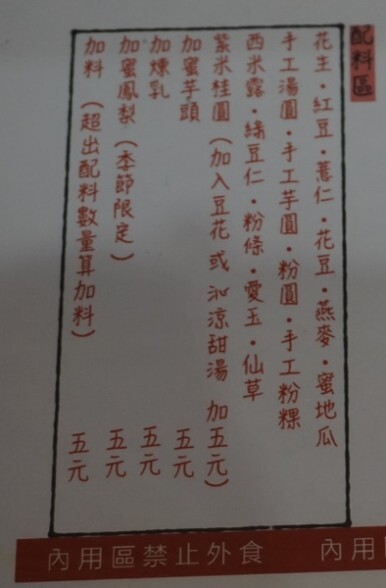 配料區
花生・紅豆・薏仁・花豆・燕麥・蜜地瓜
手工湯圓・手工芋圓・粉圓・手工粉粿
西米露・綠豆仁・粉條・愛玉・仙草
紫米桂圓（加入豆花或沁涼甜湯 加五元）
加蜜芋頭 五元
加煉乳 五元
加蜜鳳梨（季節限定） 五元
加料（超出配料數量算加料） 五元
內用區禁止外食
內用